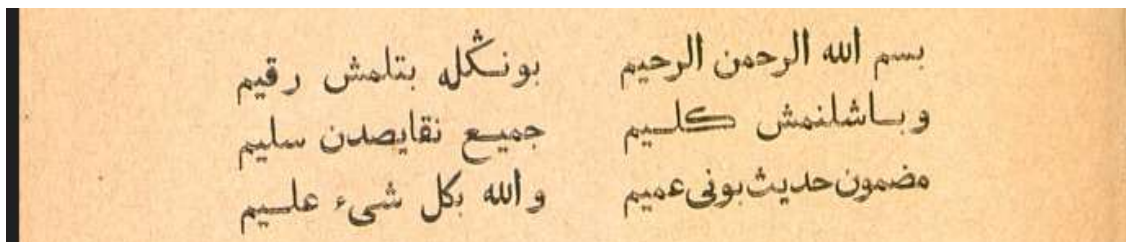 بسم الله الرحمن الرحيم بونڭله بتلمش رقيم
وباشلنمش كليم جميع نقايصدن سليم
مضمون حديث بونى عميم والله بكل شىء عليم